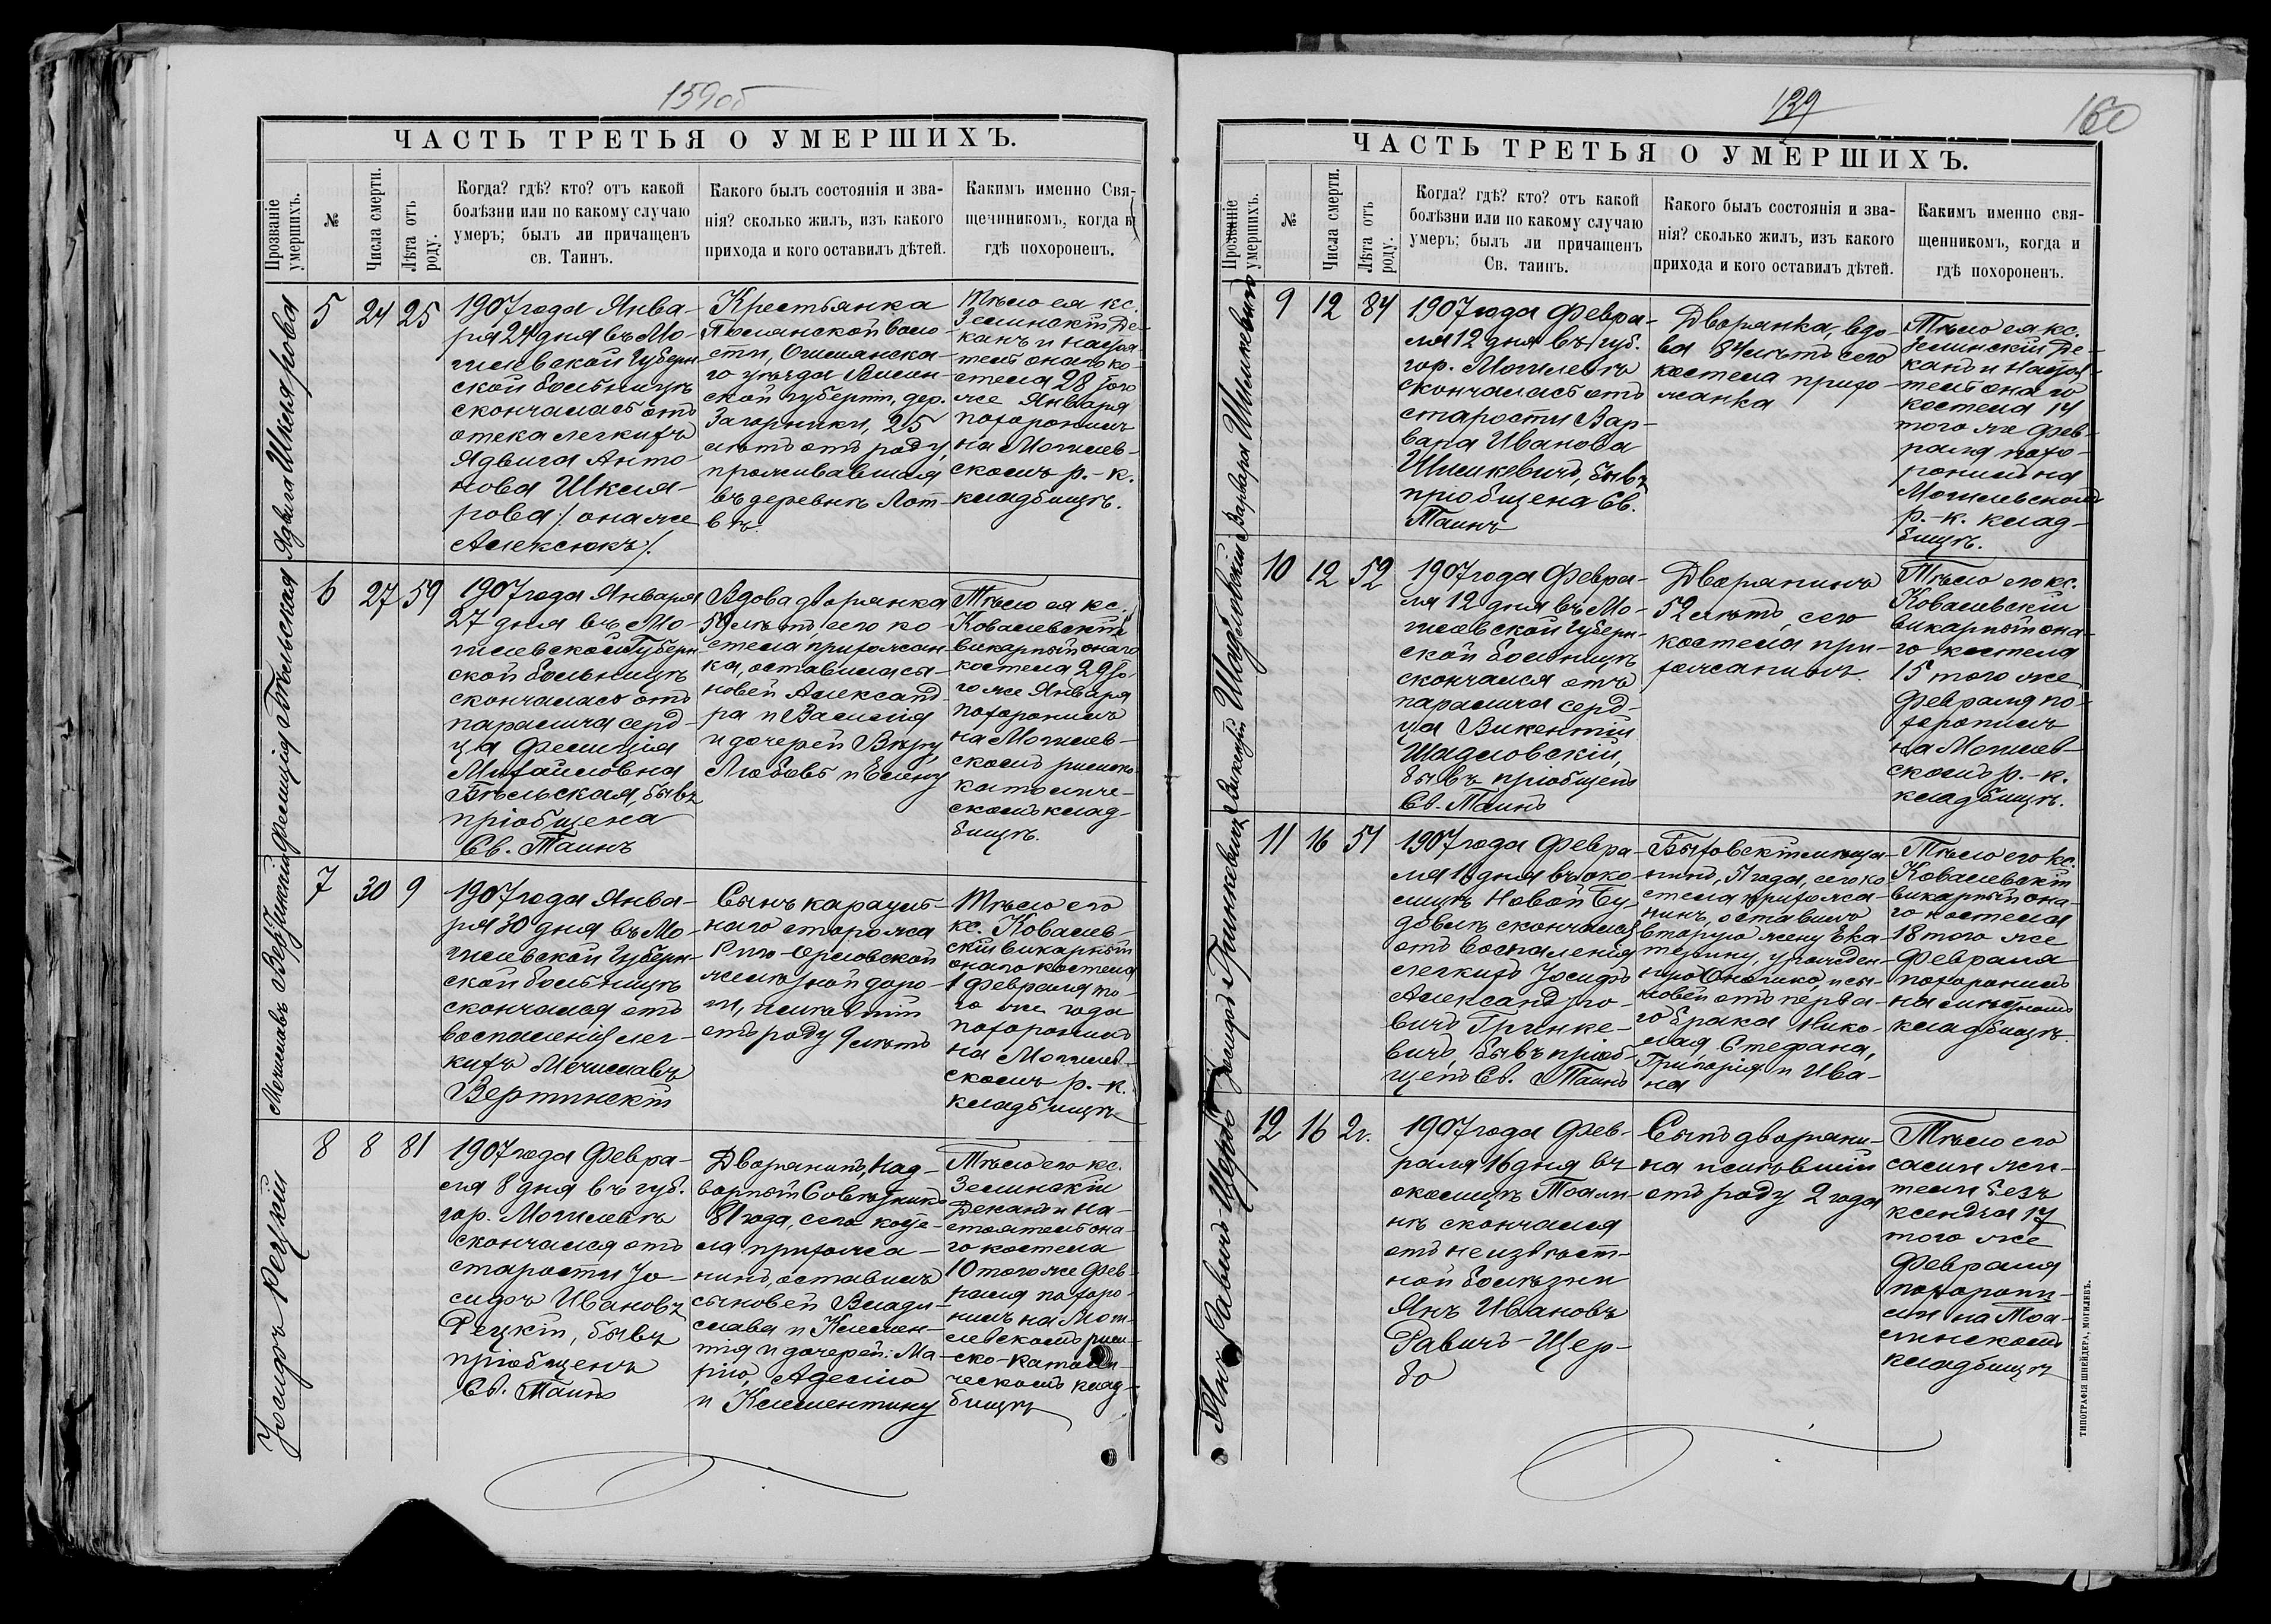 159об
ЧАСТЬ ТРЕТЬЯ О УМЕРШИХЪ.
Прозваніе умершихъ.
№
Числа смерти.
Лѣта отъ роду.
Когда? гдѣ? кто? отъ какой
болѣзни или по какому случаю
умеръ; былъ ли причащенъ
св. Таинъ.
Какого былъ состоянія и зва-
нія? сколько жилъ, изъ какого
прихода и кого оставилъ дѣтей.
Какимъ именно Свя-
щенникомъ, когда и
гдѣ похороненъ.
Ядвига Шклярова
5
24
25
1907 года Янва-
ря 24 дня въ Мо-
гилевской Губерн-
ской больницѣ
скончалась отъ
отека легкихъ
Ядвига Анто-
нова Шкля-
рова /. она же
Алексюкъ /.
Крестьянка
Полянской воло-
сти, Ошмянска-
го уѣзда Вилен-
ской губерніи, дер.
Загорники, 25
лѣтъ отъ роду,
проживавшая
въ деревнѣ Лот-
вѣ
Тѣло ея кс.
Зелинскій Де-
канъ и настоя-
тель онаго ко-
стела 28 того
же Января
похоронилъ
на Могилев-
скомъ р.-к.
кладбищѣ.
Фелиція Бѣльская
6
27
59
1907 года Января
27 дня въ Мо-
гилевской Губерн-
ской больницѣ
скончалась отъ
паралича серд-
ца Фелиція
Михайловна
Бѣльская, бывъ
пріобщена
Св. Таинъ
Вдова дворянка
59 лѣтъ, сего ко-
стела прихожан-
ка, оставила сы-
новей Александ-
ра и Василія
и дочерей Вѣру,
Любовь и Елену
Тѣло ея кс.
Ковалевскій
викарный онаго
костела 29 то-
го же Января
похоронилъ
на Могилев-
скомъ римско-
католиче-
скомъ клад-
бищѣ.
Мечиславъ Вержинскій
7
30
9
1907 года Янва-
ря 30 дня въ Мо-
гилевской Губерн-
ской больницѣ
скончался отъ
воспаленія лег-
кихъ Мечиславъ
Вертинскій
Сынъ карауль-
наго сторожа
Риго-Орловской
желѣзной доро-
ги, жившій
отъ роду 9 лѣтъ
Тѣло его
кс. Ковалев-
скій викарный
онаго костела
1 февраля то-
го же года
похоронилъ
на Могилев-
скомъ р.-к.
кладбищѣ
Іосифъ Рецкій
8
8
81
1907 года Февра-
ля 8 дня въ губ.
гор. Могилевѣ
скончался отъ
старости Іо-
сифъ Ивановъ
Рецкій, бывъ
пріобщенъ
Св. Таинъ
Дворянинъ, Над-
ворный Совѣтникъ
81 года, сего косте-
ла прихожа-
нинъ, оставилъ
сыновей Влади-
слава и Клемен-
тія и дочерей: Ма-
рію, Аделію
и Клементину
Тѣло его кс.
Зелинскій
Деканъ и на-
стоятель она-
го костела
10 того же Фев-
раля похоро-
нилъ на Моги-
левскомъ рим-
ско-католи-
ческомъ клад-
бищѣ
139
160
ЧАСТЬ ТРЕТЬЯ О УМЕРШИХЪ.
Прозваніе умершихъ.
№
Числа смерти.
Лѣта отъ роду.
Когда? гдѣ? кто? отъ какой
болѣзни или по какому случаю
умеръ; былъ ли причащенъ
Св. таинъ.
Какого былъ состоянія и зва-
нія? сколько жилъ, изъ какого
прихода и кого оставилъ дѣтей.
Какимъ именно свя-
щенникомъ, когда и
гдѣ похороненъ.
Варвара Шимкевичъ
9
12
84
1907 года Февра-
ля 12 дня въ губ.
гор. Могилевѣ
скончалась отъ
старости Вар-
вара Иванова
Шимкевичъ, бывъ
пріобщена Св.
Таинъ
Дворянка, вдо-
ва 84 лѣтъ сего
костела прихо-
жанка
Тѣло ея кс.
Зелинскій Де-
канъ и настоя-
тель онаго
костела 14
того же Фев-
раля похо-
ронилъ на
Могилевскомъ
р.-к. клад-
бищѣ.
Викентій Шадловскій
10
12
52
1907 года Февра-
ля 12 дня въ Мо-
гилевской Губерн-
ской больницѣ
скончался отъ
паралича серд-
ца Викентій
Шадловскій,
бывъ пріобщенъ
Св. Таинъ
Дворянинъ
52 лѣтъ, сего
костела при-
хожанинъ.
Тѣло его кс.
Ковалевскій
викарный она-
го костела
15 того же
Февраля по-
хоронилъ
на Могилев-
скомъ р.-к.
кладбищѣ.
Іосифъ Гринкевичъ
11
16
51
1907 года Февра-
ля 16 дня въ око-
лицѣ Новой Бу-
довлѣ скончался
отъ воспаленія
легкихъ Іосифъ
Александро-
вичъ Гринке-
вичъ, бывъ пріоб-
щенъ Св. Таинъ
Быховскій мѣща-
нинъ, 51 года, сего ко-
стела прихожа-
нинъ, оставилъ
вторую жену Ека-
терину, урожден-
ную и сы-
новей отъ перва-
го брака Нико-
лая, Стефана,
Григорія и Ива-
на
Тѣло его кс.
Ковалевскій
викарный она-
го костела
18 того же
Февраля
похоронилъ
на мѣстномъ
кладбищѣ.
Янъ Равичъ-Щербо
12
16
2 г.
1907 года Фев-
раля 16 дня въ
околицѣ Тоали-
нѣ скончался
отъ неизвѣст-
ной болѣзни
Янъ Ивановъ
Равичъ-Щер-
бо
Сынъ дворяни-
на жившій
отъ роду 2 года
Тѣло его
сами жи-
тели безъ
ксендза 17
того же
Февраля
похорони-
ли на Тоа-
линскомъ
кладбищѣ
ТИПОГРАФІЯ ШНЕЙДЕРА, МОГИЛЕВЪ.